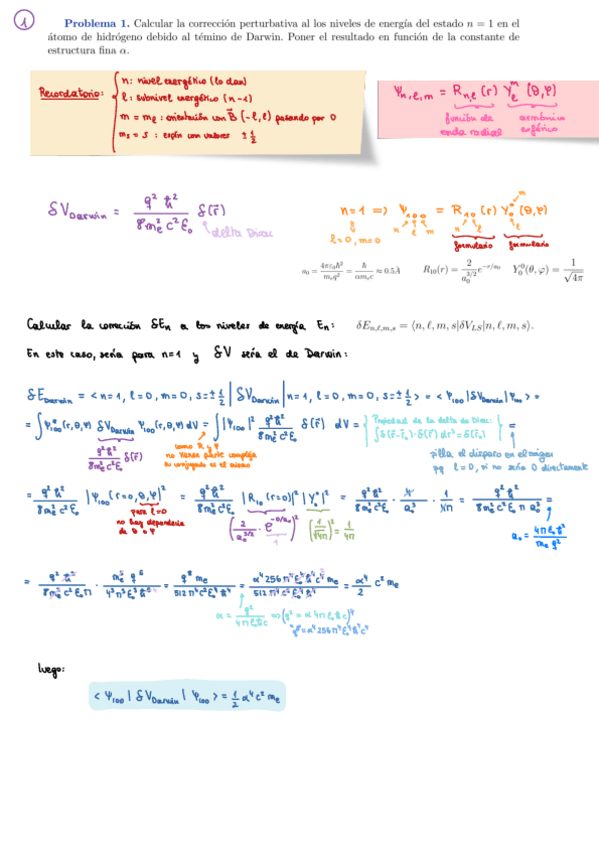 1
Problema 1. Calcular la corrección perturbativa al los niveles de energía del estado n = 1 en el
átomo de hidrógeno debido al témino de Darwin. Poner el resultado en función de la constante de
estructura fina α.
Recordatorio:
n: nivel energético (lo dan)
ℓ: subnivel energético (n-1)
m = mℓ: orientación con B⃗ (-ℓ, ℓ) pasando por 0
ms = s : espín con valores ± 1/2
Ψn,ℓ,m = Rn,ℓ (r) Yℓ^m (θ,φ)
función de onda radial
armónico esférico
δV Darwin = q² ħ² / 8me² c² ε₀ δ(r⃗)
delta Dirac
n=1 => Ψ₁₀₀ = R₁₀ (r) Y₀⁰ (θ,φ)
ℓ=0, m=0
n ℓ m n ℓ ℓ m
formulario formulario
a₀ = 4πε₀ħ² / meq² = ħ / αmec ≈ 0.5Å
R₁₀(r) = 2 / a₀^3/2 e^−r/a₀
Y₀⁰(θ, φ) = 1 / √4π
Calcular la corrección δEn a los niveles de energía En: δEn,ℓ,m,s = ⟨n, ℓ, m, s|δVLS|n, ℓ, m, s⟩.
En este caso, sería para n=1 y δV sería el de Darwin:
δE Darwin = < n=1, ℓ=0, m=0, s=± 1/2 | δV Darwin | n=1, ℓ=0, m=0, s=± 1/2 > = < Ψ₁₀₀ | δV Darwin | Ψ₁₀₀ > =
= ∫ Ψ*₁₀₀ (r,θ,φ) δV Darwin Ψ₁₀₀ (r,θ,φ) dV = ∫ |Ψ₁₀₀|² q² ħ² / 8me² c² ε₀ δ(r⃗) dV = { Propiedad de la delta de Dirac: ∫ δ(r⃗-r⃗₀)·δ(r⃗) dr³ = δ(r⃗₀) } =
q² ħ² / 8me² c² ε₀ δ(r⃗)
como R y Y
no tienen parte compleja
su conjugado es el mismo
pilla el disparo en el origen
pq ℓ=0, si no sería 0 directamente
= q² ħ² / 8me² c² ε₀ |Ψ₁₀₀ (r=0,θ,φ)|² = q² ħ² / 8me² c² ε₀ |R₁₀ (r=0)|² |Y₀⁰|² = q² ħ² / 8me² c² ε₀ · 4 / a₀³ · 1 / 4π = q² ħ² / 8me² c² ε₀ π a₀³ =
para ℓ=0
no hay dependencia
de θ o φ
(2 / a₀^3/2 · e^-0/a₀)² (1/√4π)² = 1/4π
1
a₀ = 4π ε₀ ħ² / me q²
= q² ħ² / 8me² c² ε₀ π · me³ q⁶ / 4³ π³ ε₀³ ħ⁶ = q⁸ me / 512 π⁴ c² ε₀⁴ ħ⁴ = α⁴ 256 π⁴ ε₀⁴ ħ⁴ c⁴ me / 512 π⁴ c² ε₀⁴ ħ⁴ = α⁴ / 2 c² me
α = q² / 4π ε₀ ħ c => (q² = α 4π ε₀ ħ c)⁴
q⁸ = α⁴ 256 π⁴ ε₀⁴ ħ⁴ c⁴
luego:
< Ψ₁₀₀ | δ V Darwin | Ψ₁₀₀ > = 1/2 α⁴ c² me